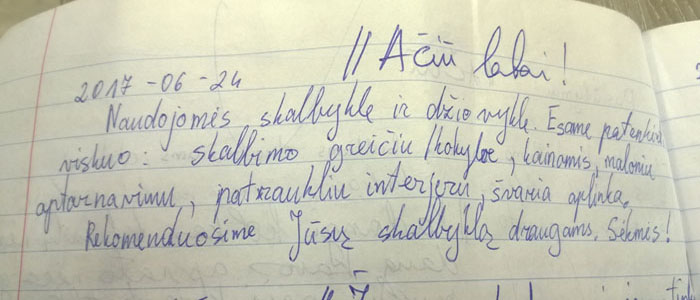 // Ačiū labai!
2017-06-24
Naudojomės skalbykle ir džiovykle. Esame patenkinti
viskuo: skalbimo greičiu/kokybe, kainomis, maloniu
aptarnavimu, patraukliu interjeru, švaria aplinka.
Rekomenduosime Jūsų skalbyklą draugams. Sėkmės!